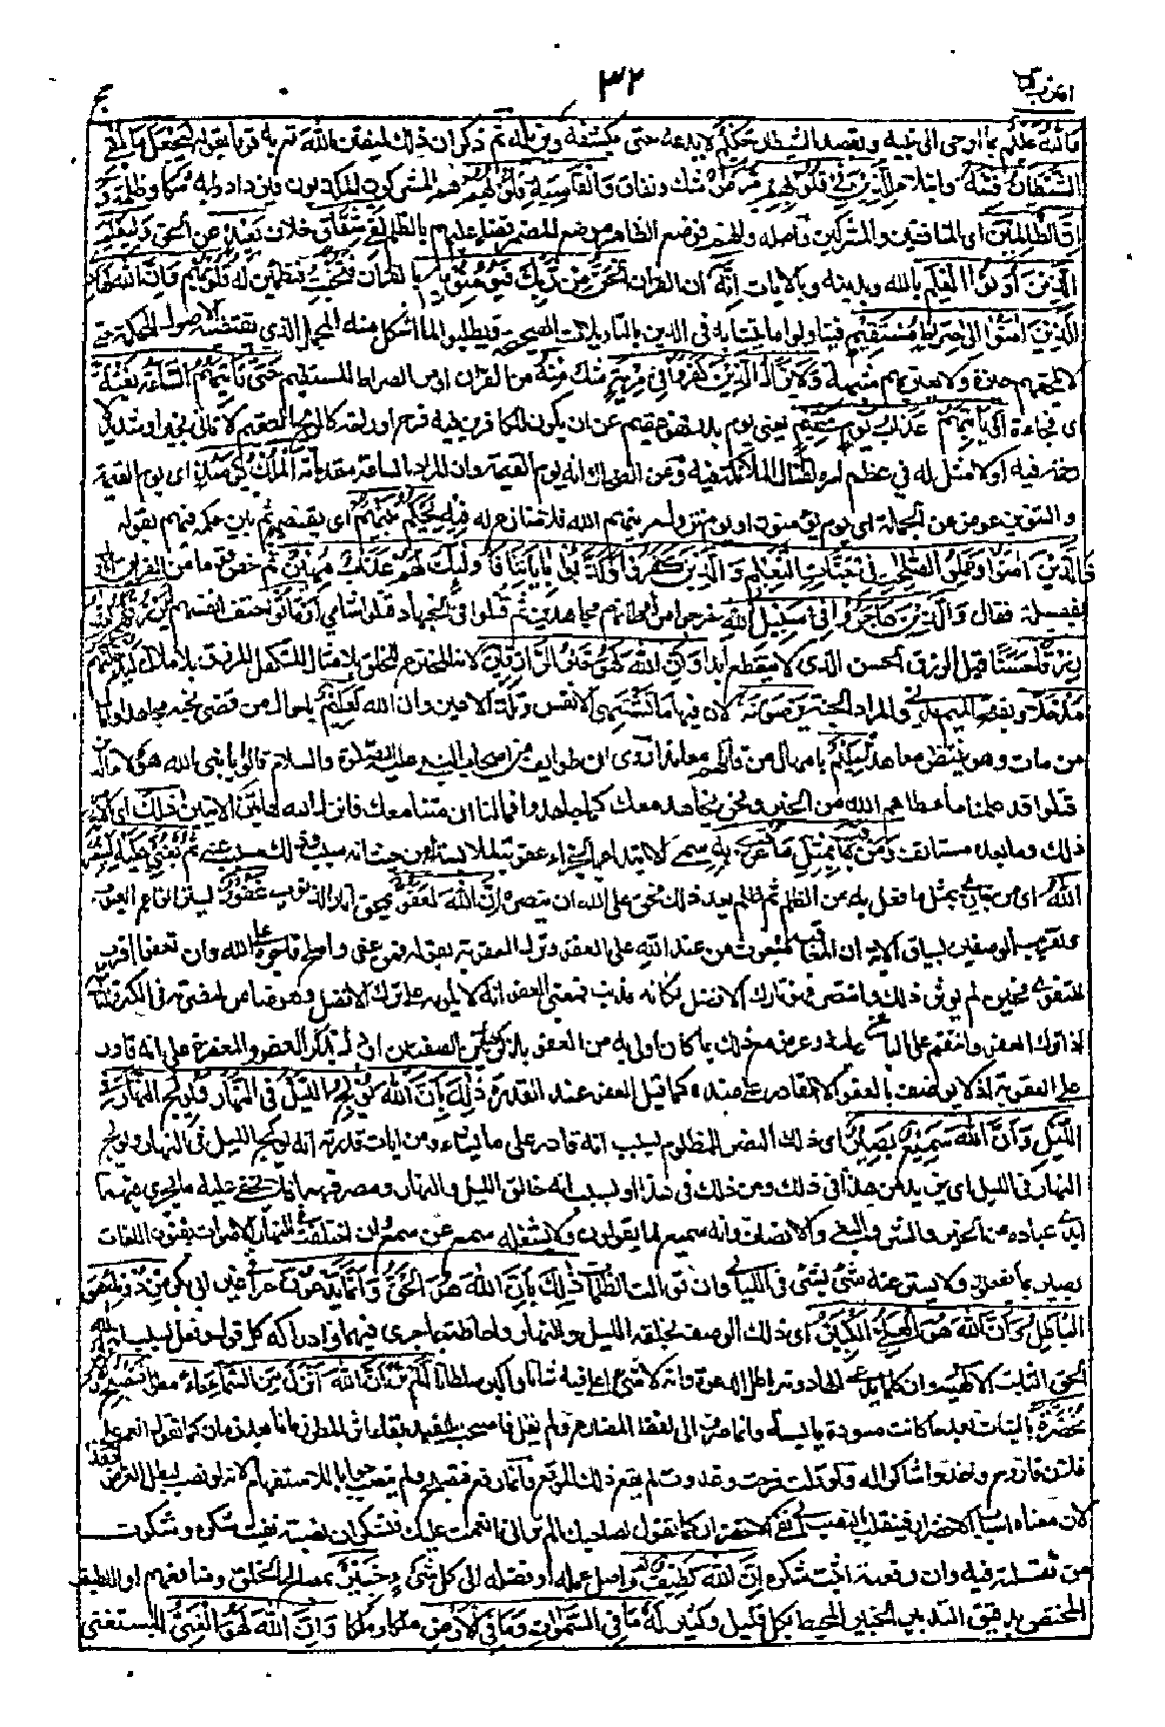 ٣٢
والله عليم بما اوحى الى نبيه وبقصد الشيطان حكيم لا يدعه حتى يكشفه ويزيله ثم ذكر ان ذلك ليفتن الله تعالى به قوما بقوله ليجعل ما يلقى
الشيطان فتنة وابتلاء للذين فى قلوبهم مرض شك ونفاق والقاسية قلوبهم هم المشركون المكذبون
وان الظالمين اى المنافقين والمشركين واصله وانهم فوضع الظاهر موضع المضمر قضاء عليهم بالظلم لفى شقاق خلاف بعيد عن الحق وليعلم
الذين اوتوا العلم بالله وبدينه وبالآيات انه ان القرآن الحق من ربك فيؤمنوا به بالقرآن فتخبت تطمئن له قلوبهم وان الله لهاد
الذين آمنوا الى صراط مستقيم فيتاولوا ما يتشابه فى الدين بالتاويلات الصحيحة ويطلبوا لما اشكل منه المحمل الذى تقتضيه الاصول المحكمة حتى
لا تلحقهم حيرة ولا تعتريهم شبهة ولا يزال الذين كفروا فى مرية شك منه من القرآن او من الصراط المستقيم حتى تأتيهم الساعة بغتة
اى فجاءة او يأتيهم عذاب يوم عقيم يعنى يوم بدر فهو عقيم عن ان يكون للكافرين فيه فرح او راحة كالريح العقيم لا تاتى بخير او شديد لا
رحمة فيه او لا مثل له فى عظم امره لقتال الملائكة فيه وعن الضحاك انه يوم القيمة وان المراد بالساعة مقدماته الملك يومئذ اى يوم القيمة
والتنوين عوض عن الجملة اى يوم يؤمنون او يوم تزول مريتهم لله فلا منازع له فيه يحكم بينهم اى يقضى ثم بين حكمه فيهم بقوله
فالذين آمنوا وعملوا الصلحت فى جنت النعيم والذين كفروا وكذبوا بآيتنا فاولئك لهم عذاب مهين ثم خص قوما من الفريق الاول
بفضيلة فقال والذين هاجروا فى سبيل الله خرجوا من اوطانهم مجاهدين ثم قتلوا قتلوا شامى او ماتوا حتف انفسهم ليرزقنهم الله
رزقا حسنا قيل الرزق الحسن الذى لا ينقطع ابدا وان الله لهو خير الرازقين لانه المخترع للخلق بلا مثال المتكفل للرزق بلا ملال ليدخلنهم
مدخلا بفتح الميم مدنى والمراد الجنة يرضونه لان فيها ما تشتهى الانفس وتلذ الاعين وان الله لعليم باحوال من قضى نحبه مجاهدا وآمال
من مات وهو ينتظر معاهدا حليم بامهال من قاتلهم معاندا روى ان طوائف من اصحاب النبى عليه الصلوة والسلام قالوا يا نبى الله هؤلاء الذين
قتلوا قد علمنا ما اعطاهم الله من الخير ونحن نجاهد معك كما جاهدوا فما لنا ان متنا معك فانزل الله هاتين الآيتين ذلك اى الامر
ذلك وما بعده مستانف ومن عاقب بمثل ما عوقب به سمى الابتداء بالجزاء عقوبة لملابسته له من حيث انه سبب وذلك مسبب عنه ثم بغى عليه لينصرنه
الله اى من جازى بمثل ما فعل به من الظلم ثم ظلم بعد ذلك فحق على الله ان ينصره ان الله لعفو يمحو آثار الذنوب غفور يستر انواع العيوب
وتقريب الوصفين بسياق الآية ان المعاقب مبعوث من عند الله على العفو وترك العقوبة بقوله فمن عفى واصلح فاجره على الله وان تعفوا اقرب
للتقوى فحين لم يؤثر ذلك وانتصر فهو تارك للافضل فكانه مذنب
على العقوبة اذ لا يوصف بالعفو الا القادر على ضده كما قيل العفو عند القدرة ذلك بان الله يولج الليل فى النهار ويولج النهار فى
الليل وان الله سميع بصير اى ذلك النصر للمظلوم بسبب انه قادر على ما يشاء ومن آيات قدرته انه يولج الليل فى النهار ويولج
النهار فى الليل اى يزيد من هذا فى ذلك ومن ذلك فى هذا او بسبب انه خالق الليل والنهار ومصرفهما فلا يخفى عليه ما يجرى فيهما على
ايدى عباده من الخير والشر والبغى والانصاف وانه سميع لما يقولون ولا يشغله سمع عن سمع وان اختلفت فى النهار الاصوات بفنون اللغات
بصير بما يفعلون ولا يستر عنه شئ بشئ فى الليالى وان توالت الظلمات ذلك بان الله هو الحق وان ما يدعون من دونه هو
الباطل وان الله هو العلى الكبير اى ذلك الوصف بخلقه الليل والنهار واحاطته بما يجرى فيهما وادراكه كل قول وفعل بسبب ان الله
الحق الثابت الهيته وان كل ما يدعى الها دونه باطل الدعوة وانه لا شئ اعلى منه شانا واكبر سلطانا الم تر ان الله انزل من السماء ماء مطرا فتصبح الارض
مخضرة بالنبات بعد ما كانت مسودة يابسة وانما صرف الى لفظ المضارع ولم يقل فاصبحت ليفيد بقاء اثر المطر زمانا بعد زمان كما تقول انعم على
فلان فاروح واغدو شاكرا له ولو قلت فرحت وغدوت لم يقع ذلك الموقع وانما رفع فتصبح ولم ينصب جوابا للاستفهام لانه لو نصب لبطل الغرض
لان معناه اثبات الاخضرار فينقلب بالنصب الى نفى الاخضرار كما تقول لصاحبك الم تر انى انعمت عليك فتشكر ان نصبته نفيت شكره وشكوت
من تفريطه فيه وان رفعته اثبت شكره ان الله لطيف واصل عمله او فضله الى كل شئ خبير بمصالح الخلق ومنافعهم او اللطيف
المختص بدقيق التدبير الخبير المحيط بكل قليل وكثير له ما فى السموات وما فى الارض ملكا وملكا وان الله لهو الغنى المستغنى